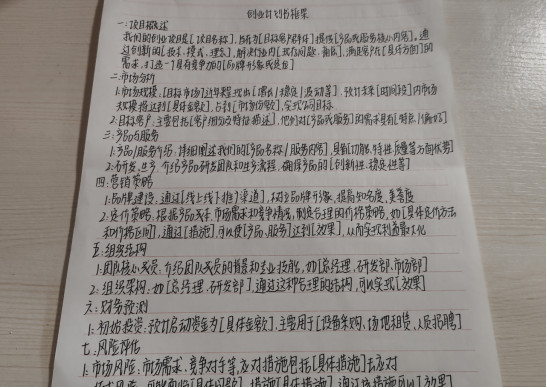 创业计划书框架
一、项目概述
我们的创业项目是[项目名称],旨在为[目标客户群体]提供[产品或服务核心内容]。通
过创新的[技术、模式、理念],解决行业内[现存问题、痛点],满足客户在[具体方面]的
需求,打造一个具有竞争力的[品牌形象或定位]
二、市场分析
1.市场规模:[目标市场]近年来呈现出[增长/稳定/波动等],预计未来[时间段]内市场
规模将达到[具体金额],占到[市场份额],实现什么目标
2.目标客户:主要包括[客户细分及特征描述],他们对[产品或服务]的需求具有[特点/偏好]
三、产品与服务
1.产品/服务介绍:详细阐述我们的[产品名称/服务内容],具有[功能、特性、质量等方面优势]
2.研发、生产:介绍产品研发团队和生产流程,确保产品的[创新性、稳定性等]
四、营销策略
1.品牌建设:通过[线上线下推广渠道],树立品牌形象,提高知名度、美誉度
2.定价策略:根据产品成本、市场需求和竞争情况,制定合理的价格策略,如[具体定价方法
和价格区间],通过[措施],可以使[产品、服务]达到[效果],从而实现利益最大化
五、组织结构
1.团队核心成员:介绍团队成员的背景和专业技能,如[总经理、研发部、市场部]
2.组织架构:如[总经理、研发部],通过这种合理的结构,可以实现[效果]
六、财务预测
1.初始投资:预计启动资金为[具体金额],主要用于[设备采购、场地租赁、人员招聘]
七、风险评估
1.市场风险:市场需求、竞争对手等,应对措施包括[具体措施]去应对